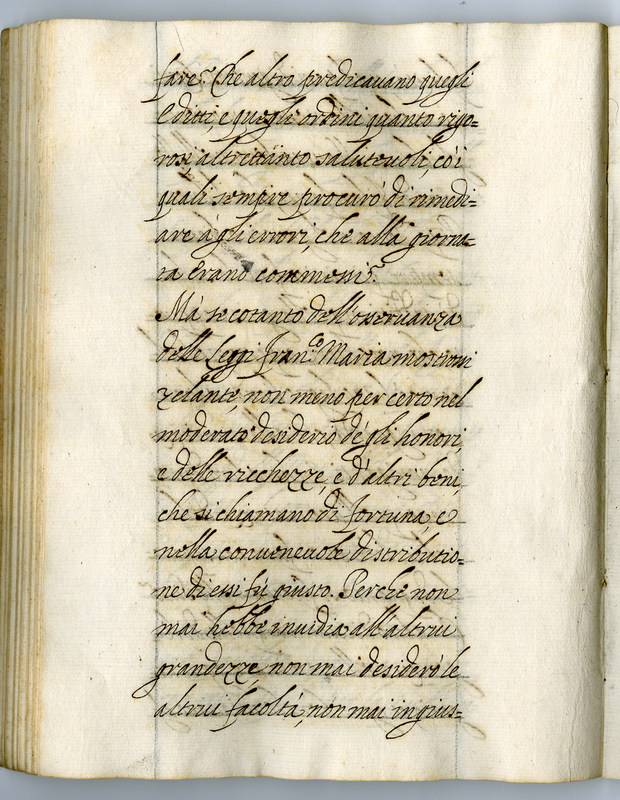 fare? Che altro predicauano quegli
Editti, e quegli ordini quanto rigo=
rosi, altrettanto saluteuoli, cò i
quali sempre procurò di rimedi=
are à gli errori, che alla giorna=
ta erano commessi?
Mà se cotanto dell'osseruanza
delle Leggi Fran.co Maria mostrossi
zelante, non meno per certo nel
moderato desiderio dè gli honori,
e delle ricchezze, e d'altri beni,
che si chiamano di fortuna, e
nella conueneuole distributio=
ne di essi fù giusto. Perche non
mai hebbe inuidia all'altrui
grandezze non mai desiderò le
altrui facoltà, non mai ingius=